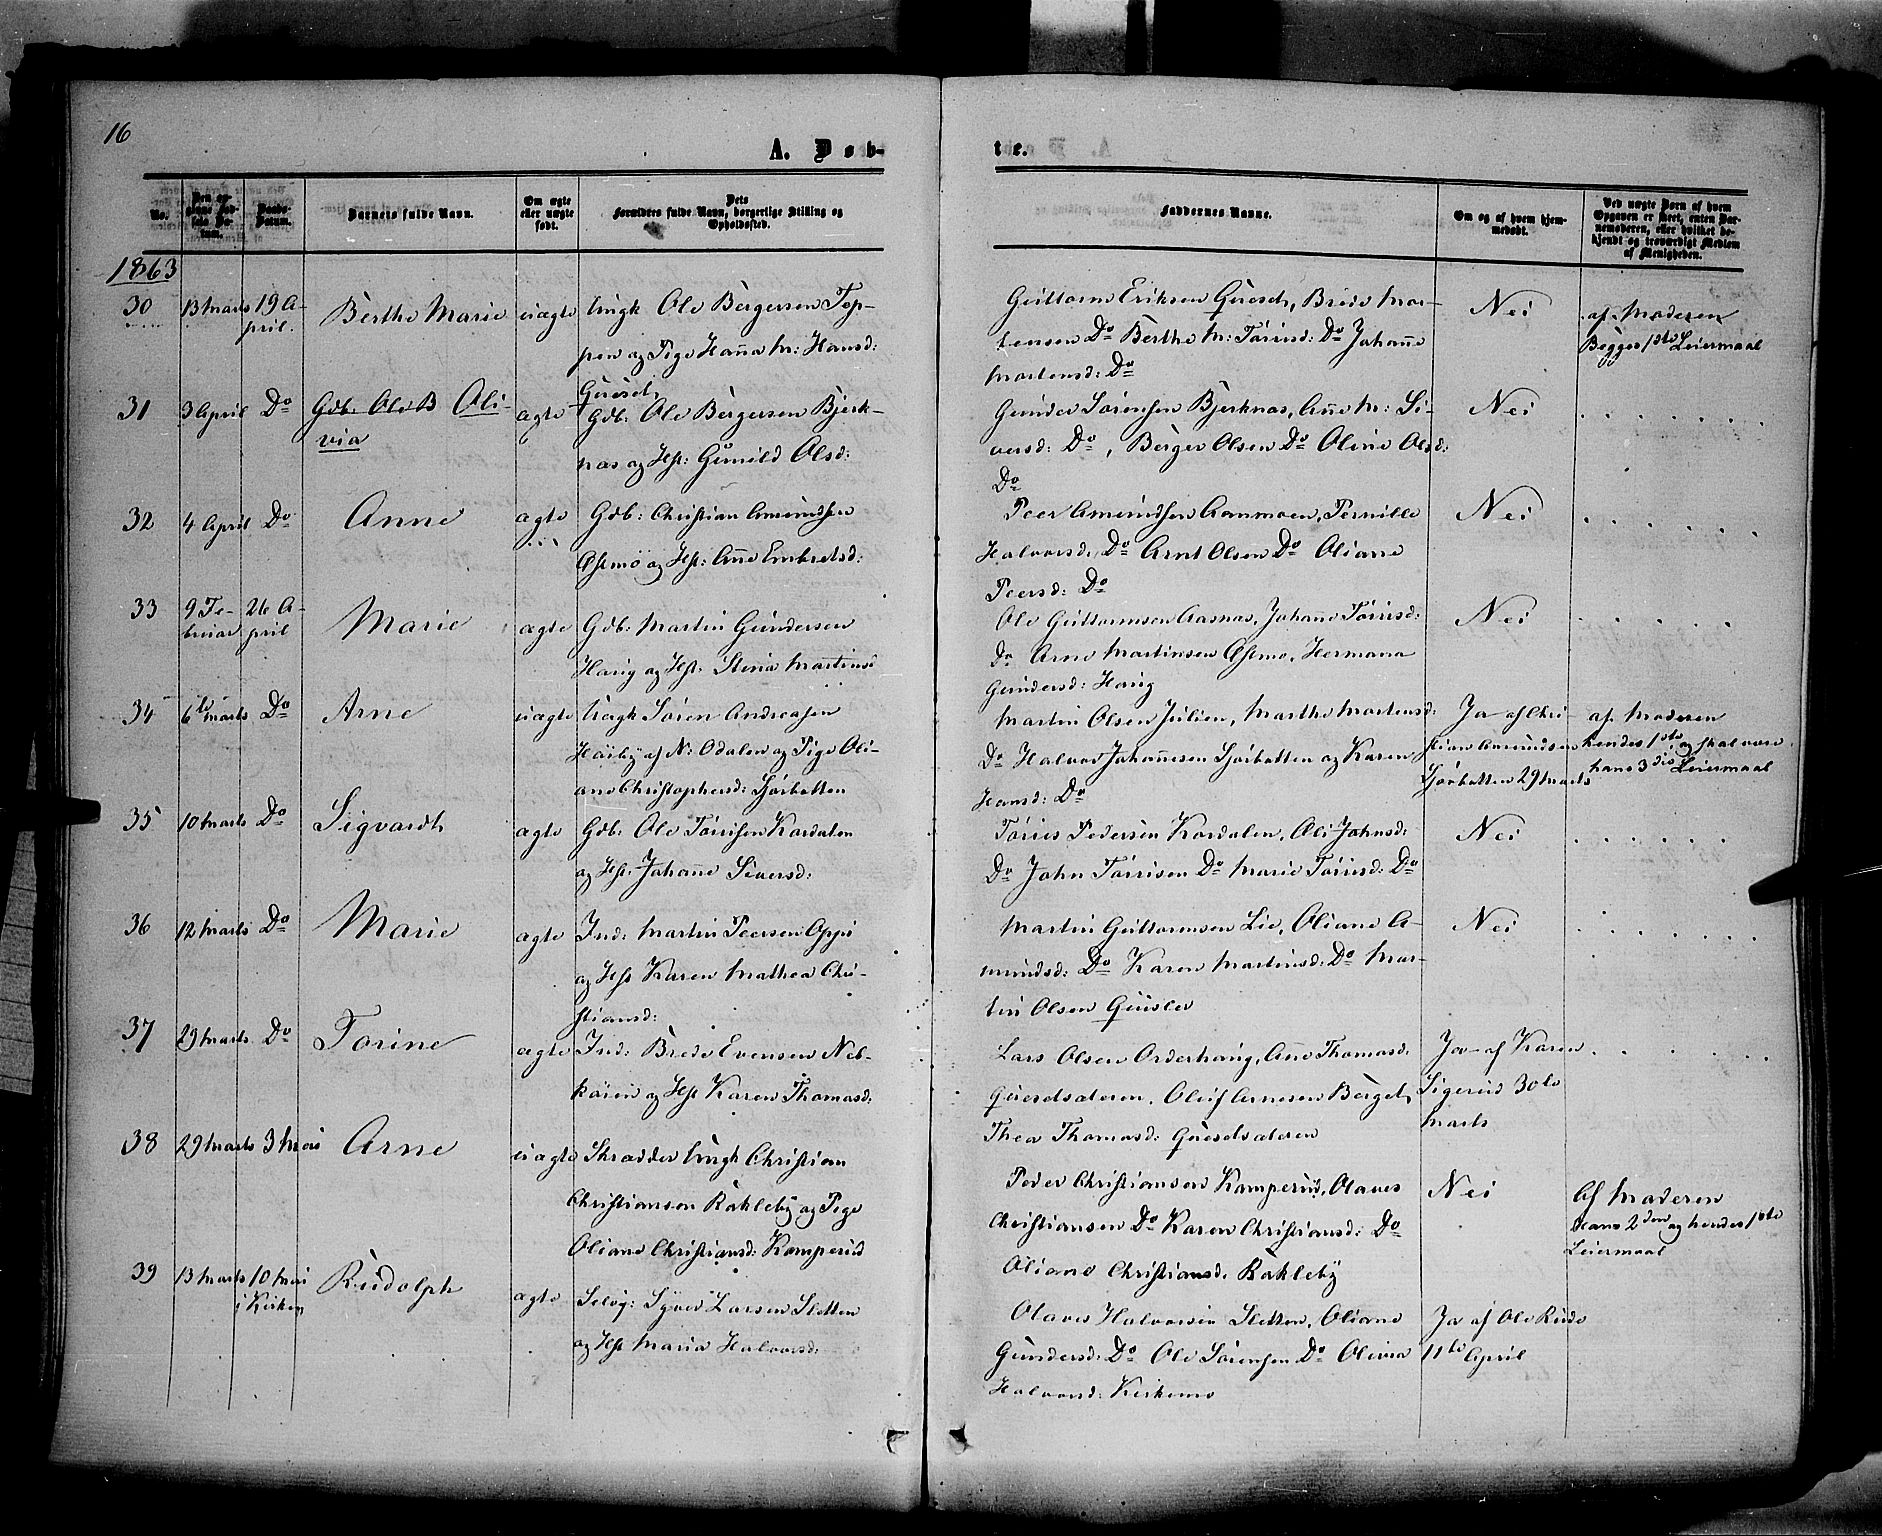 16
A. Døb-
te.
No.
Den opgivne Fødsels Datum.
Daabs-Datum.
Barnets fulde Navn.
Om ægte eller uægte født.
Dets Forældres fulde Navn, borgerlige Stilling og Opholdssted.
Faddernes Navne.
Om og af hvem hjemmedøbt.
Ved uægte Børn af hvem Opgaven er skeet, enten Barnemoderen, eller hvilket bekjendt og troværdigt Medlem af Menigheden.
1863
30 13 Marts 19 A-
pril.
Berthe Marie uægte Ungk Ole Bergersen Top-
pen og Pige Hanna M: Hansd:
Guttorm Eriksen Brede Mor-
tensen Do Berthe M: Tørrisd: Do Johanne
Mortensd: Do
Nei
af Moderen
Begges 1ste Leiermaal
31 3 April Do Gdb: Ole B Oli-
via
ægte Gdb: Ole Bergersen Bjerk-
næs og Hst: Gunild Olsd:
Gunder Sørensen Bjerknæs, Anne M: Si-
versd: Do, Berger Olsen Do Oline Olsd:
Do
Nei
32 4 April Do Anne ægte Gdb: Christian Amundsen
Østmo og Hst: Anne Embretsd:
Peer Amundsen Aamoen, Pernille
Halvorsd: Do Arnt Olsen Do Oliane
Peersd: Do
Nei
33 9 Fe-
bruar
26 A-
pril
Marie ægte Gdb: Martin Gundersen
Haug og Hst: Stina Martinsd
Ole Guttormsen Aasnæs, Johanne Tørrisd:
Do Arne Martinsen Østmo, Hermana
Gundersd: Haug
Nei
34 6te Marts Do Arne uægte Ungk Søren Andreasen
Høiby af N: Odalen og Pige Oli-
ane Christophersd: Sjørbotten
Martin Olsen Julien, Marthe Mortensd:
Do Halvor Johannesen Sjørbotten og Karen
Hansd: Do
Ja af Chri-
stian Amundsen
Sjørbotten 29 Marts
af Moderen
hendes 1ste og skal være
hans 3die Leiermaal
35 10 Marts Do Sigvardt ægte Gdb: Ole Tørrisen Kordalen
og Hst. Johanne Siversd:
Tørris Pedersen Kordalen, Oli Johnsd:
Do John Tørrisen Do Marie Tørrisd: Do
Nei
36 12 Marts Do Marie ægte Ind: Martin Peersen Oppi
og Hst Karen Mathea Chri-
stiansd:
Martin Guttormsen Lie, Oliane A-
mundsd: Do Karen Martinsd: Do Mar-
tin Olsen Guusler
Nei
37 29 Marts Do Torine ægte Ind: Brede Evensen Neb-
køien og Hst Karen Thomasd:
Lars Olsen Orderhaug, Ane Thomasd.
Guesetsæteren, Oluf Arnesen Berget,
Thea Thomasd: Guesetsæteren
Ja af Karen
Sigerud 30te
Marts
38 29 Marts 3 Mai Arne uægte Skrædder Ungk Christian
Christiansen Rakleby og Pige
Oliane Christiansd: Kamperud
Peder Christiansen Kamperud, Olaves
Christiansen Do Karen Christiansd: Do
Oliane Christiansd: Rakleby
Nei
Af Moderen
Hans 2den og hendes 1ste
Leiermaal
39 13 Marts 10 Mai
i Kirken
Rudolph ægte Seløg: Syver Larsen Sletten
og Hst Maria Halvorsd:
Olaves Halvorsen Sletten, Oliane
Gundersd: Do Ole Sørensen Do Olivia
Halvorsd: Kirkemo
Ja af Ole Rude
11te April